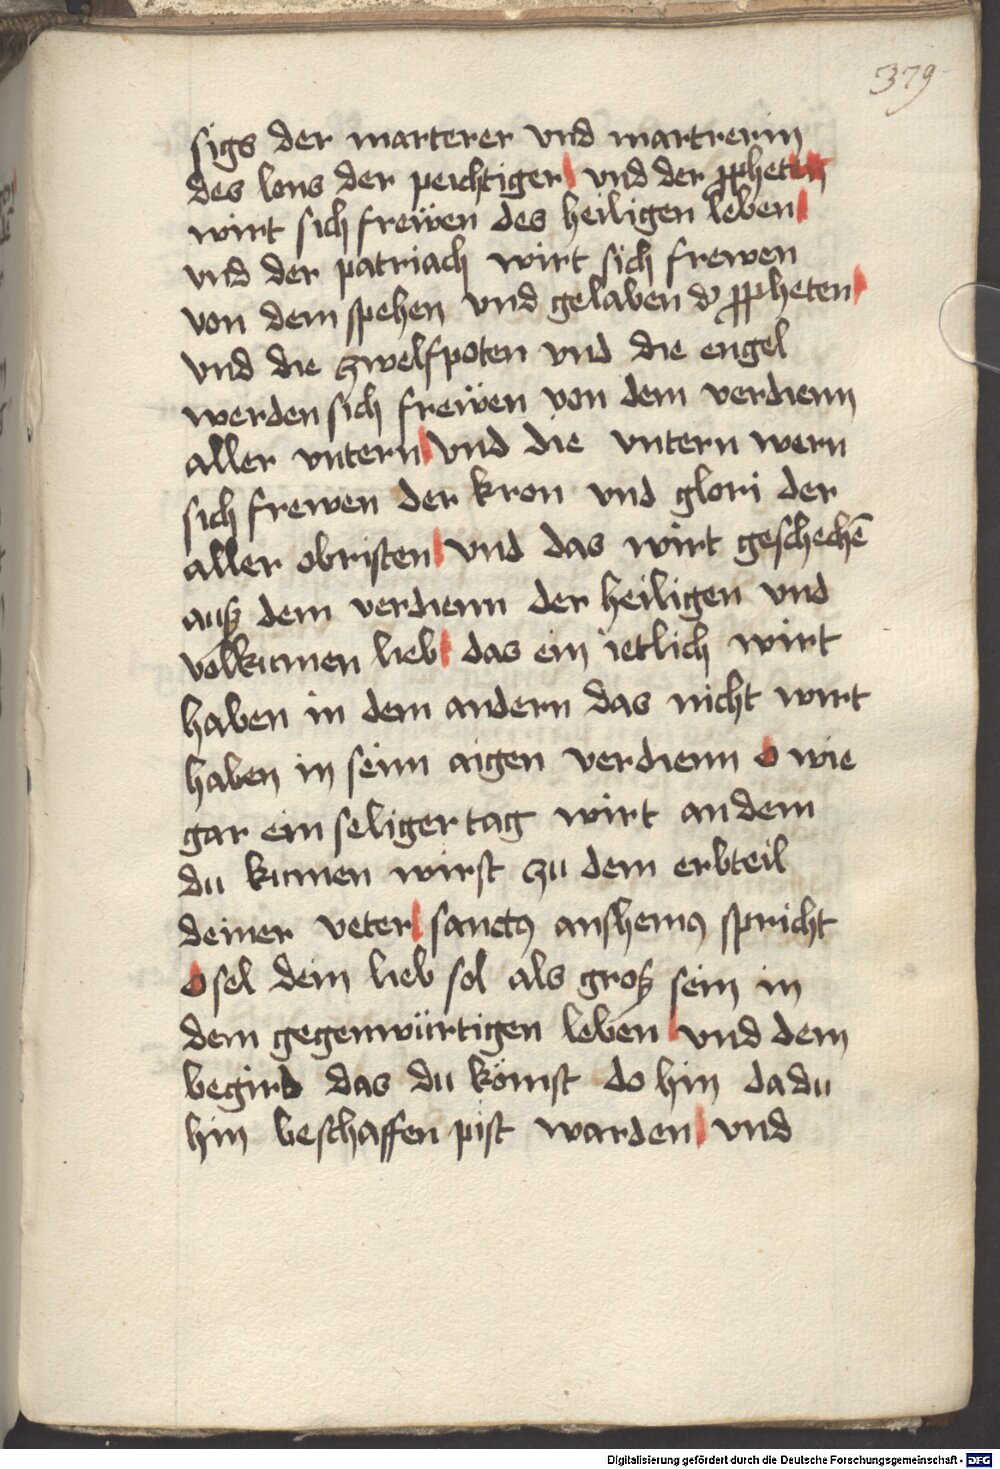 379
sigs der marterer vnd martrerin
des lons der peichtiger vnd der ppheten
wirt sich freẅen des heiligen leben
vnd der patriach wirt sich frewen
von dem spehen vnd gelaben d' ppheten
vnd die zwelfpoten vnd die engel
werden sich freẅen von dem verdienn
aller vntern vnd die vntern wern
sich frewen der kron vnd glori der
aller obristen vnd das wirt geschechē
auß dem verdienn der heiligen vnd
volkumen lieb das ein ietlich wirt
haben in dem andern das nicht wirt
haben in seinn aigen verdienn o wie
gar ein seliger tag wirt an dem
du kumen wirst zu dem erbteil
deiner veter sanctꝰ anshemꝰ spricht
O sel dein lieb sol als groß sein in
dem gegenwürtigen leben vnd dem
begird das du kömst do hin da du
hin beschaffen pist warden vnd
Digitalisierung gefördert durch die Deutsche Forschungsgemeinschaft - DFG